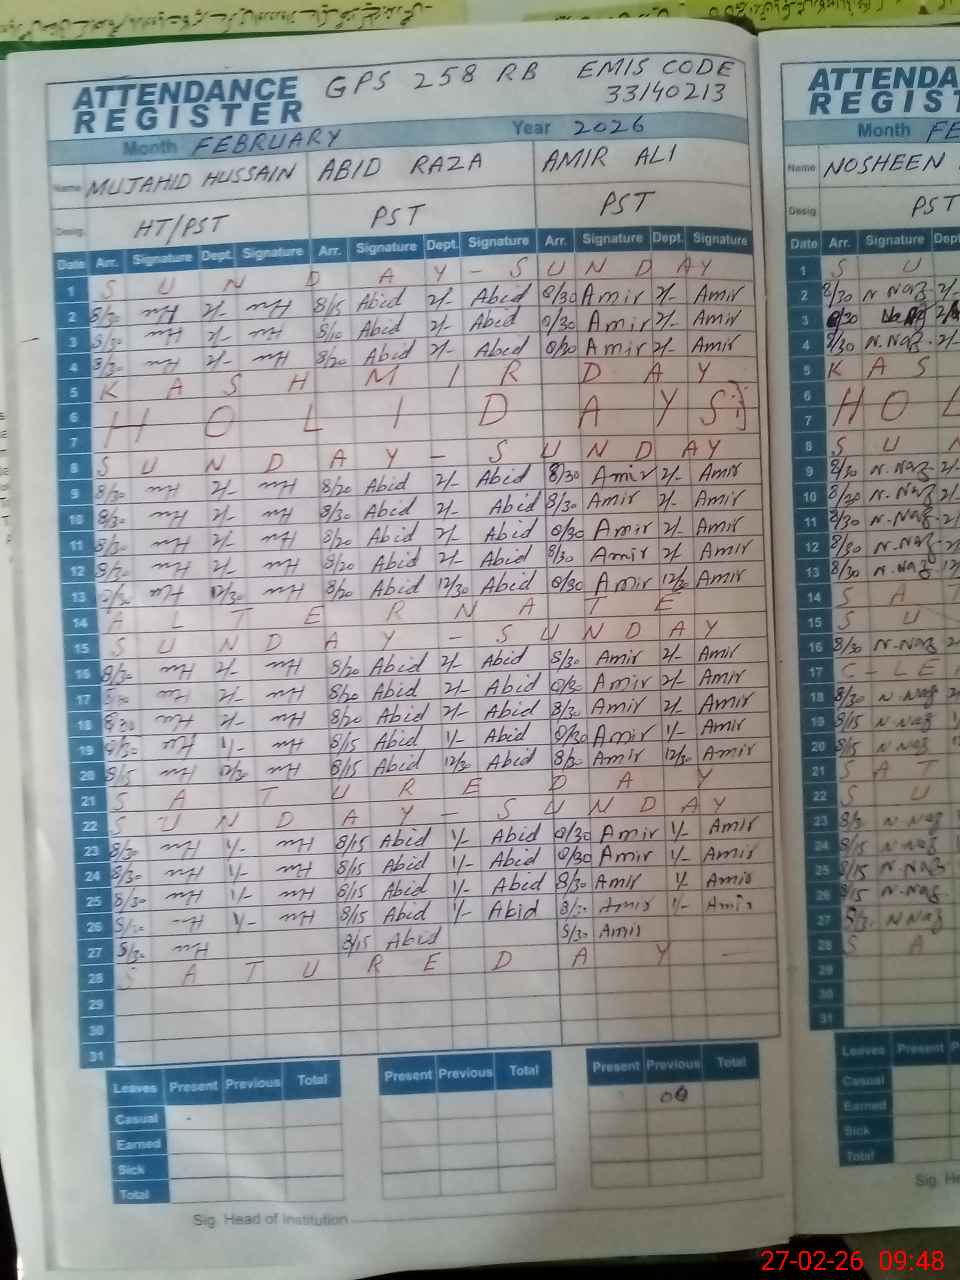 ATTENDANCE REGISTER GPS 258 RB EMIS CODE 33140213
Month FEBRUARY Year 2026
Name MUJAHID HUSSAIN ABID RAZA AMIR ALI
Desig. HT/PST PST PST
Date Arr. Signature Dept. Signature Arr. Signature Dept. Signature Arr. Signature Dept. Signature
1 S U N D A Y - S U N D A Y
2 8/30 2/- 8/15 Abid 2/- Abid 8/30 Amir 2/- Amir
3 8/30 2/- 8/10 Abid 2/- Abid 8/30 Amir 2/- Amir
4 8/30 2/- 8/20 Abid 2/- Abid 8/30 Amir 2/- Amir
5 K A S H M I R D A Y
6
7 H O L I D A Y S
8 S U N D A Y - S U N D A Y
9 8/30 2/- 8/20 Abid 2/- Abid 8/30 Amir 2/- Amir
10 8/30 2/- 8/30 Abid 2/- Abid 8/30 Amir 2/- Amir
11 8/30 2/- 8/20 Abid 2/- Abid 8/30 Amir 2/- Amir
12 8/30 2/- 8/20 Abid 2/- Abid 8/30 Amir 2/ Amir
13 12/30 8/20 Abid 12/30 Abid 8/30 Amir 12/30 Amir
14 A L T E R N A T E
15 S U N D A Y - S U N D A Y
16 8/30 2/- 8/20 Abid 2/- Abid 8/30 Amir 2/- Amir
17 8/30 2/- 8/20 Abid 2/- Abid 8/30 Amir 2/- Amir
18 8/30 2/- 8/20 Abid 2/- Abid 8/30 Amir 2/- Amir
19 8/30 1/- 8/15 Abid 1/- Abid 8/30 Amir 1/- Amir
20 8/15 12/30 8/15 Abid 12/30 Abid 8/30 Amir 12/30 Amir
21 S A T U R E D A Y
22 S U N D A Y - S U N D A Y
23 8/30 1/- 8/15 Abid 1/- Abid 8/30 Amir 1/- Amir
24 8/30 1/- 8/15 Abid 1/- Abid 8/30 Amir 1/- Amir
25 8/30 1/- 8/15 Abid 1/- Abid 8/30 Amir 1/ Amir
26 8/30 1/- 8/15 Abid 1/- Abid 8/30 Amir 1/- Amir
27 8/30 8/15 Abid 8/30 Amir
28 S A T U R E D A Y
29
30
31
Leaves Present Previous Total Present Previous Total Present Previous Total
Casual
Earned
Sick
Total
Sig. Head of Institution
ATTENDA
REGIST
Month FE
Name NOSHEEN
Desig PST
Date Arr. Signature Dept
1 S U
2 8/30 N.Naz 2/-
3 8/30 2/-
4 8/30 N.Naz 2/-
5 K A S
6
7 H O L
8 S U N
9 8/30 N.Naz 2/-
10 8/30 N.Naz 2/-
11 8/30 N.Naz 2/-
12 8/30 N.Naz 2/-
13 8/30 N.Naz
14 S A T
15 S U
16 8/30 N.Naz 2/-
17 C-LE
18 8/30 N.Naz 2
19 8/15 N Naz 1
20 8/15 N Naz
21 S A T
22 S U
23 8/3 N.Naz
24 8/15 N Naz
25 8/15 N.Naz
26 8/15 N.Naz
27 N Naz
28 S A
29
30
31
Leaves Present P
Casual
Earned
Sick
Total
Sig. He
27-02-26 09:48